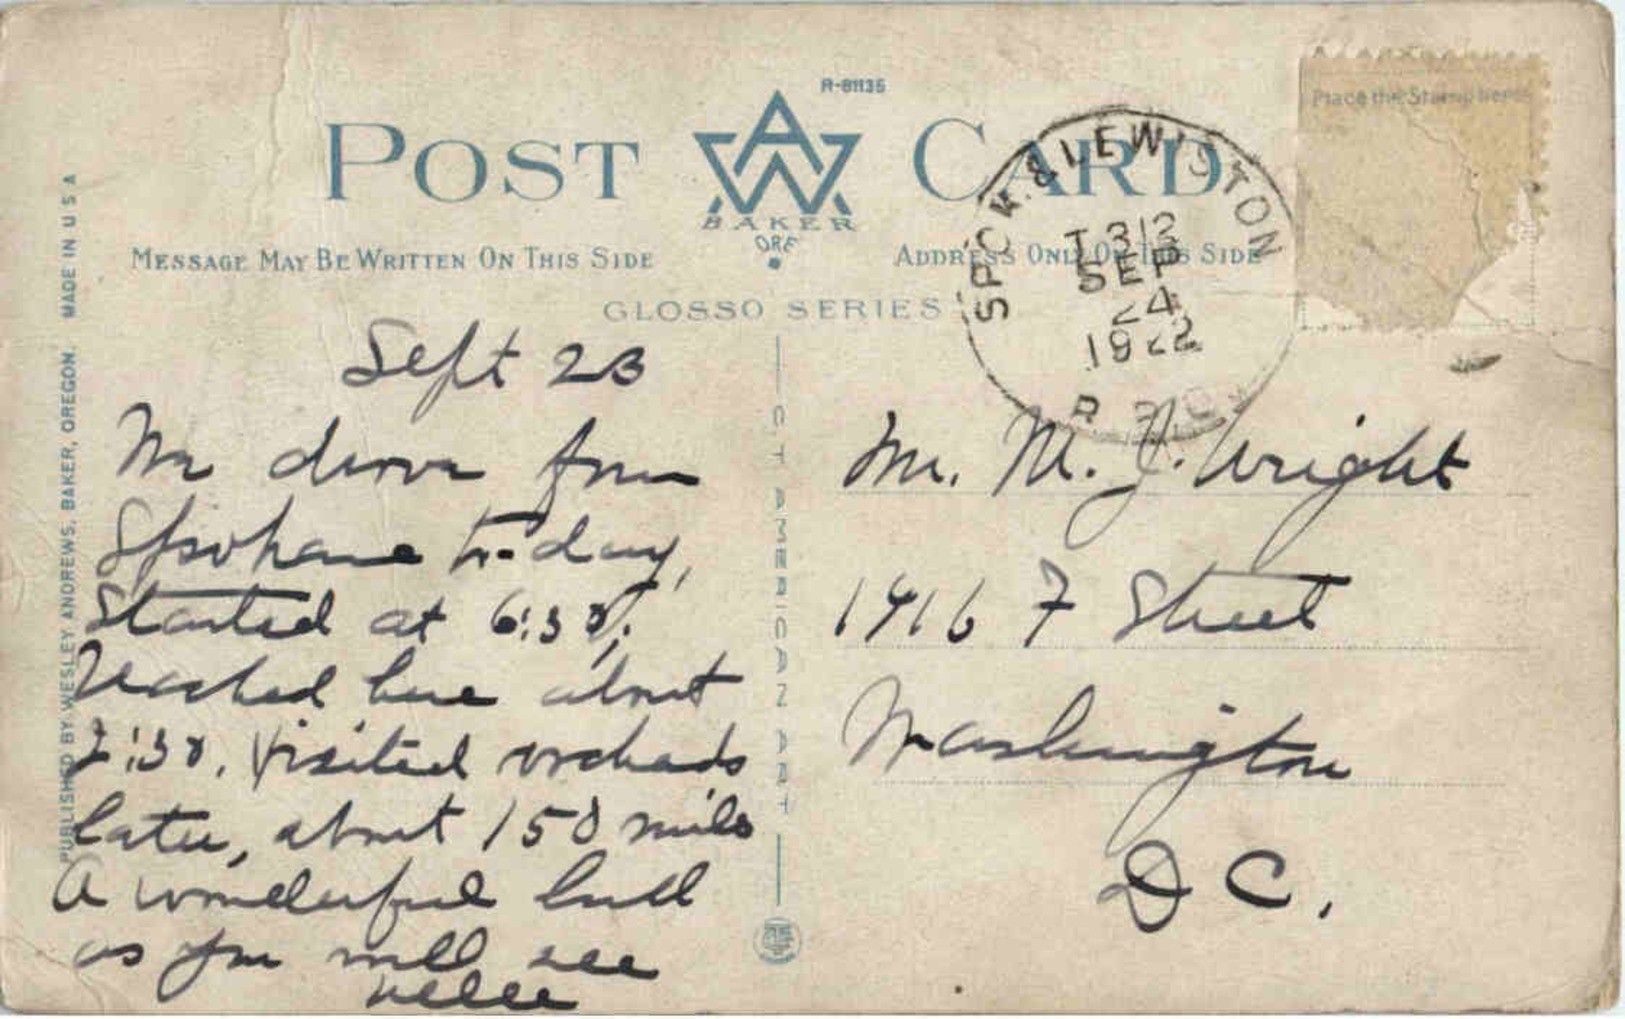 R-81135
POST CARD
AW
BAKER
ORE
MESSAGE MAY BE WRITTEN ON THIS SIDE
ADDRESS ONLY ON THIS SIDE
GLOSSO SERIES
Place the Stamp here
SPOK. & LEWISTON
T 313
SEP
24
1922
R.P.O.
PUBLISHED BY WESLEY ANDREWS, BAKER, OREGON. MADE IN USA
C T AMERICAN ART
Sept 23
We drove from
Spokane to-day,
Started at 6:30,
Reached here about
2:30. Visited orchads
later, about 150 miles
A wonderful hill
as you will see
Mr. M. J. Wright
1916 F Street
Washington
D C.